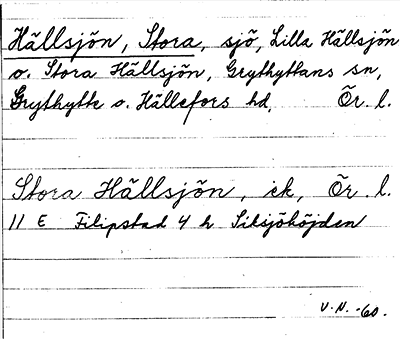 Hällsjön, Stora, sjö, Lilla Hällsjön
o. Stora Hällsjön, Grythyttans sn,
Grythytte o. Hällefors hd, Ör. l.
Stora Hällsjön, ek, Ör. l.
11 E Filipstad 4 h Siksjöhöjden
V.N. -60.